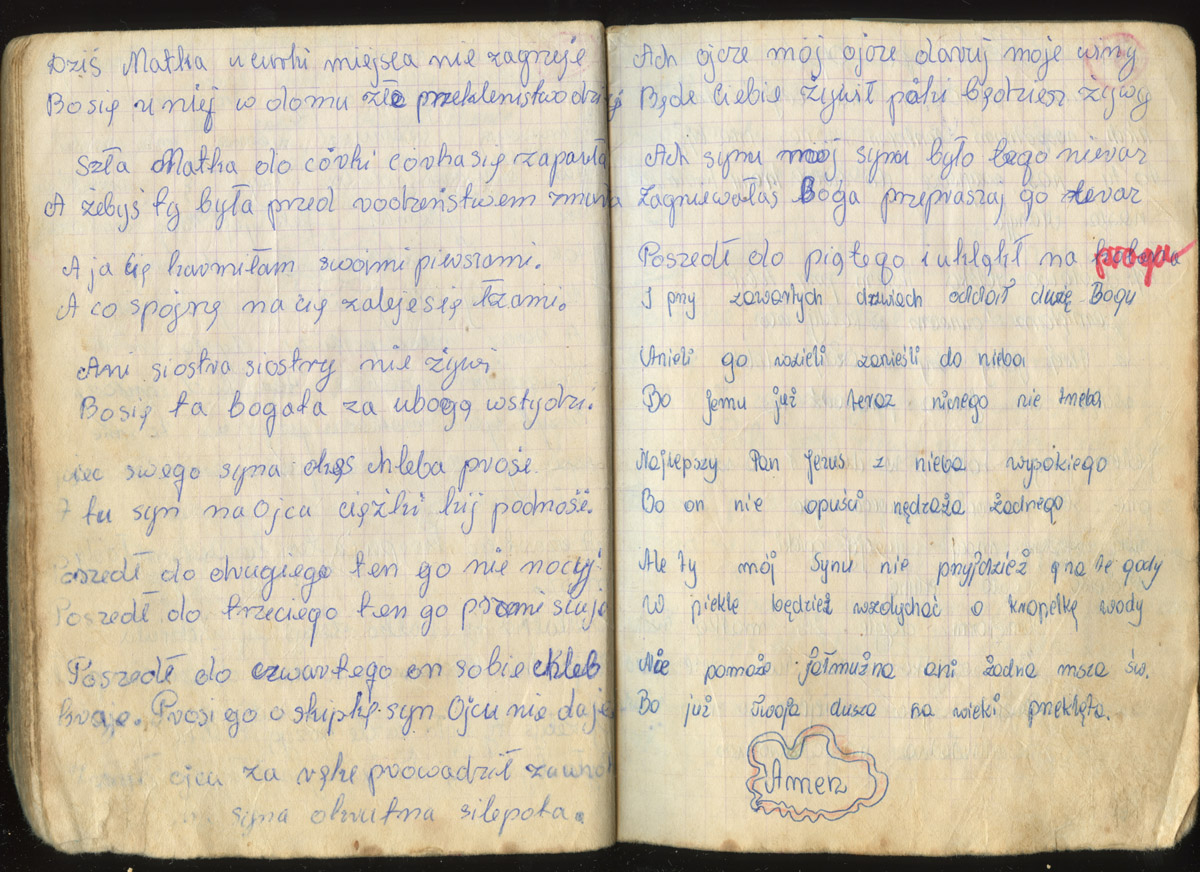 Dziś Matka u curki miejsca nie zagrzeje
Bo się u niej w domu złe przeklenistwo dziej
Szła Matka do córki corka się zaparła
A żebyś ty była przed rodzeństwem zmarła
A ja cię karmiłam swoimi piersiami.
A co spojrzę na cię zaleje się łzami.
Ani siostra siostry nie żywi
Bo się ta bogata za ubogą wstydzi.
swego syna okrąs chleba prosie
tu syn na Ojca ciężki kij podnosie.
oszedł do drugiego ten go nie nocuj
Poszedł do trzeciego ten go psami scuje
Poszedł do czwartego on sobie chleb
kraje. Prosi go o skipkę syn Ojcu nie daje
ojca za rękę prowadził
syna okrutna silepota.
Ach ojcze mój ojcze daruj moje winy
Będe Ciebie żywił póki będziesz żywy
Ach synu mój synu było tego nieraz
Zagniewałaś Boga przepraszaj go teraz
Poszedł do piątego i ukląkł na progu
I przy zawartych drzwiach oddał duzę Bogu
Anieli go wzieli i zanieśli do nieba
Bo jemu już teraz niczego nie trzeba
Najlepszy Pan Jezus z nieba wysokiego
Bo on nie opuści nędraża żadnego
Ale ty mój Synu nie przyjdzież na te gody
W piekle będzież wzdychać o kropelkę wody
Nie pomoże jałmużna ani żadna msza św.
Bo już Twoja dusza na wieki przeklęta.
Amen